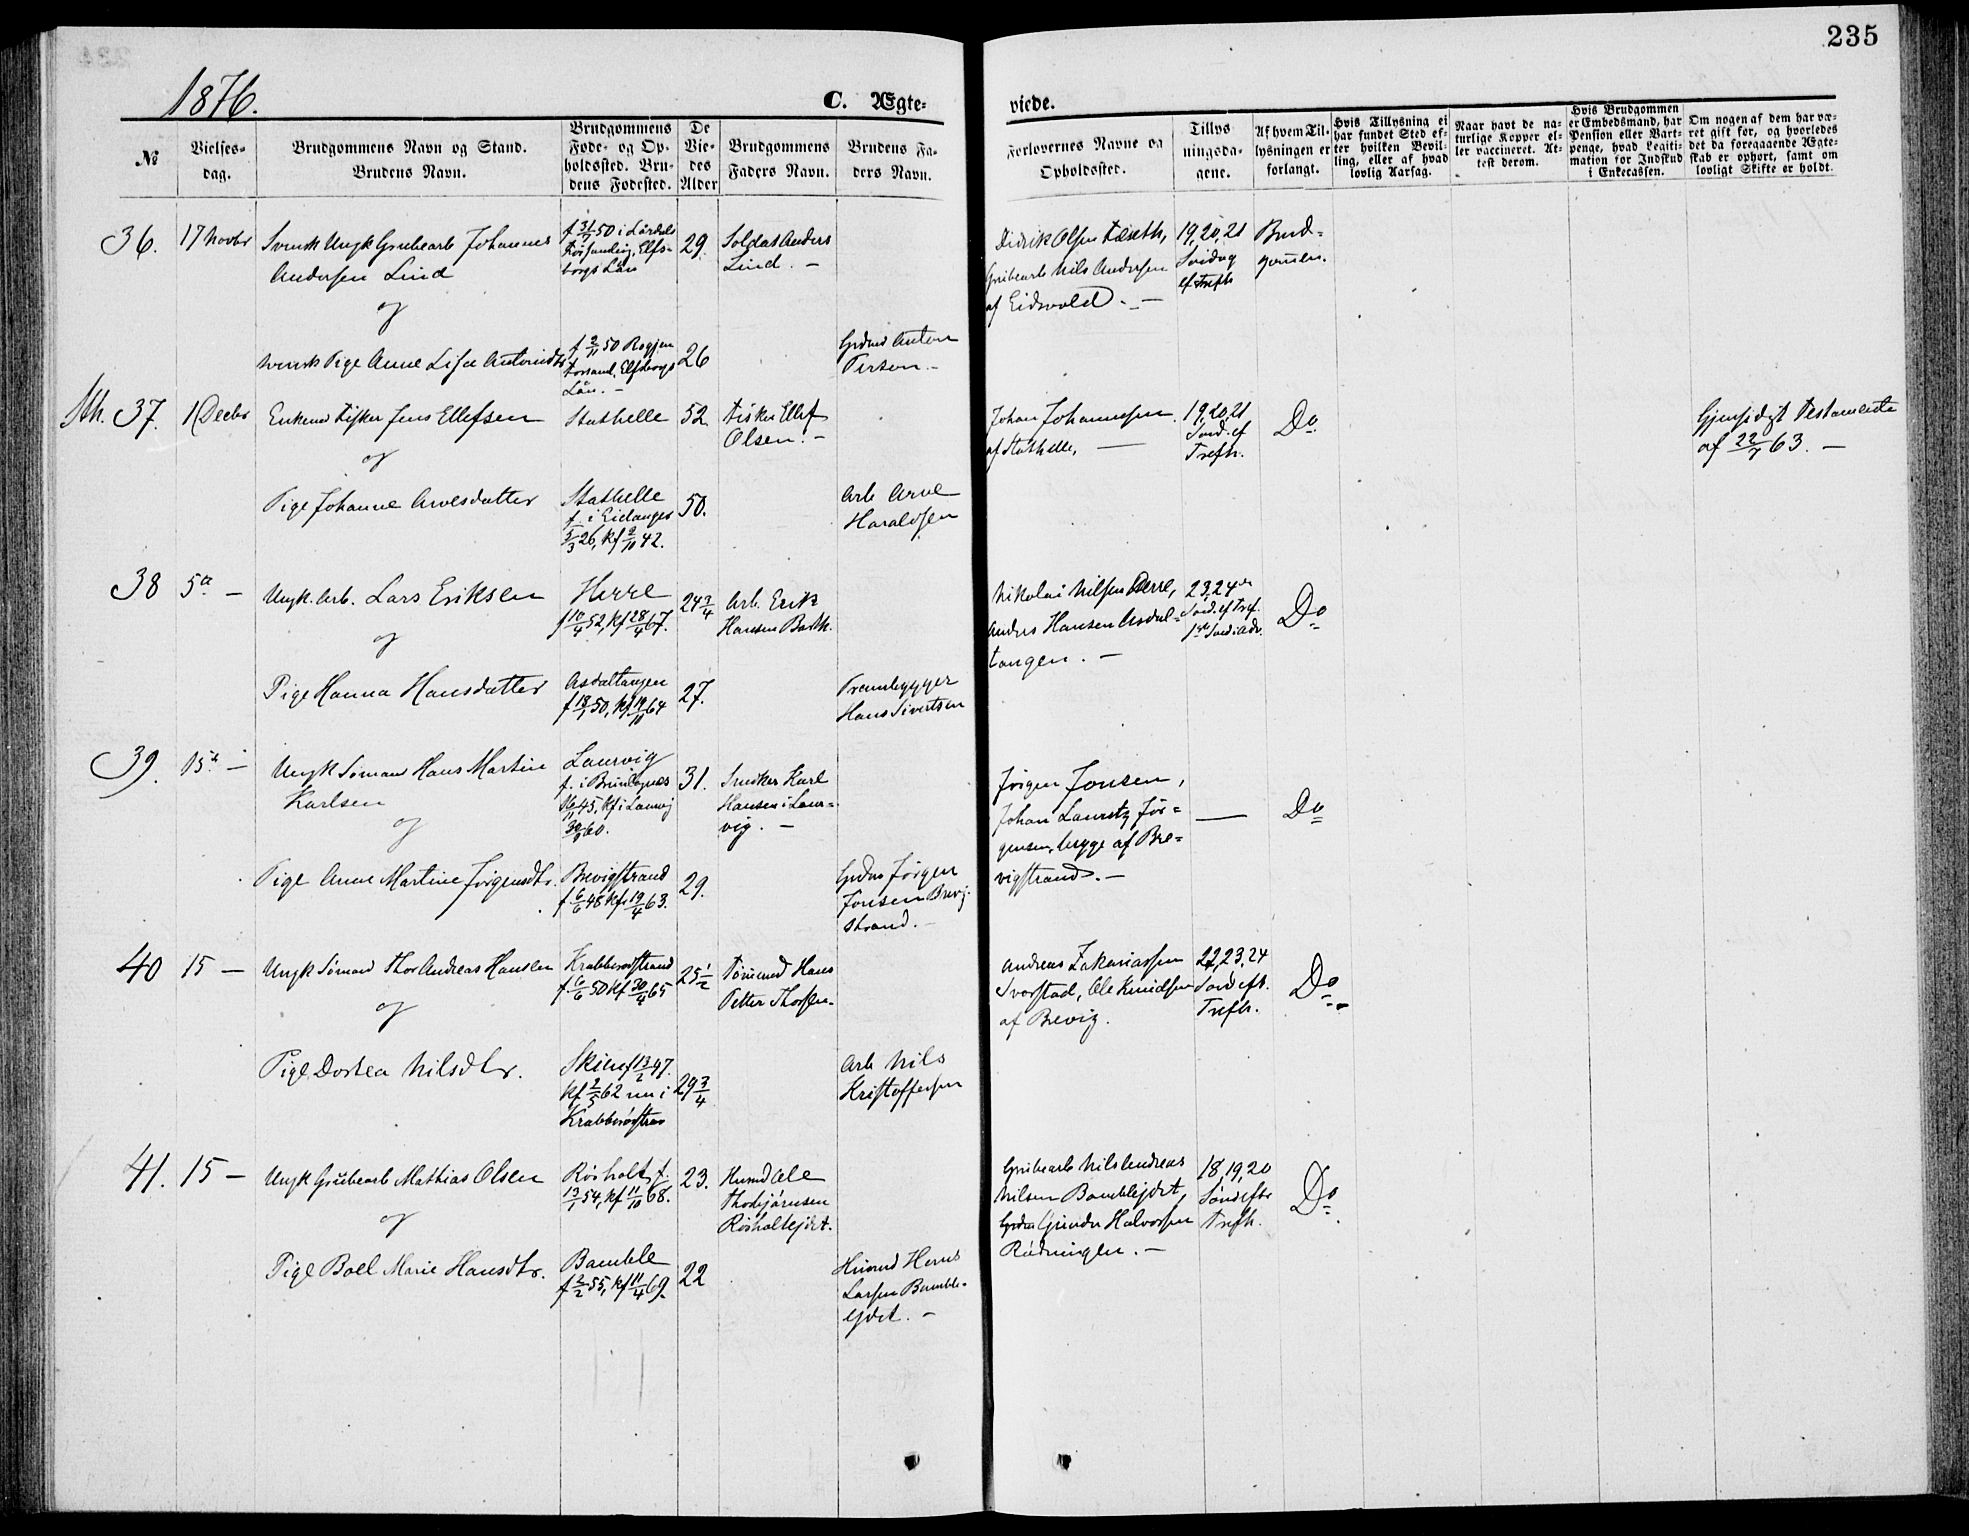 235
1876.
C. Ægte-
viede.
№
Vielses-
dag.
Brudgommens Navn og Stand.
Brudens Navn.
Brudgommens
Føde- og Op-
holdssted. Bru-
dens Fødested.
De
Vie-
des
Alder
Brudgommens
Faders Navn.
Brudens Fa-
ders Navn.
Forlovernes Navne og
Opholdssted.
Tillys
ningsda-
gene.
Af hvem Til-
lysningen er
forlangt.
Hvis Tillysning ei
har fundet Sted ef-
ter hvilken Bevil-
ling, eller af hvad
lovlig Aarsag.
Naar havt de na-
turlige Kopper el-
ler vaccineret. At-
test derom.
Hvis Brudgommen
er Embedsmand, har
Pension eller Vart-
penge, hvad Legiti-
mation for Indskud
i Enkecassen.
Om nogen af dem har væ-
ret gift før, og hvorledes
det da foregaaende Ægte-
skab er ophørt, samt om
lovligt Skifte er holdt.
36.
17 Novbr
Svensk Ungk Grubearb Johannes
Andersen Lind
og
svensk Pige Anne Lisa Antonsdtr
50 i
Elfs-
borgs Län
29.
Soldat Anders
Lind. -
f 2/11 50
Elfsborgs
Län. -
26
Grdmd Anton
Person. -
Didrik Olsen
Grubearb Nils Andersen
af Eidsvold. -
19, 20, 21
Søndag
ef Trefh
Brud-
gommen.
Sth. 37.
1 Decbr
Enkemd Fisker Jens Ellefsen
og
Pige Johanne Arvesdatter
Stathelle
52.
Fisker Ellef
Olsen. -
Stathelle
f. i Eidanger
5/3 26, kf 2/10 42.
50.
Arb Arve
Haraldsen
Johan Johannesen
af Stathelle, -
19, 20, 21
Sønd. ef
Trefh.
Do
Gjensidigt Testamente
af 22/7 63. -
38
5te -
Ungk. Arb. Lars Eriksen
og
Pige Hanna Hansdatter
Herre
f 10/4 52, kf 28/4 67.
24 3/4
Arb. Erik
Hansen Barth.
Asdaltangen
f 18/1 50, kf 19/10 64
27.
Frembygger
Hans Sivertsen
Nikolai Nilsen Herre,
Anders Hansen Asdal-
tangen. -
23, 24de
Sønd. ef Tref.
1ste Sønd i Adv.
Do
39.
15de -
Ungk Sømand Hans Martin
Karlsen
og
Pige Anne Martine Jørgensdtr.
Laurvig
f. i Brunlanæs
45, kf i Laurvig
60.
31.
Snedker Karl
Hansen i Laur-
vig. -
Brevigstrand
f 6/6 48 kf 19/4 63.
29.
Grdbr Jørgen
Jonsen Brevig
strand. -
Jørgen Jonsen,
Johan Lauretz Jør-
gensen, begge af Bre-
vigstrand. -
-
Do
40
15 -
Ungk Sømand Thor Andreas Hansen
og
Pige Dortea Nilsdtr.
Krabberødstrand
f 6/6 50 kf 30/4 65
25 1/2
Tømmermd Hans
Petter Thorsen
Skien f 13/2 47.
kf 2/5 62 nu i
Krabberødstran
29 3/4
Arb Nils
Kristoffersen
Andreas Zakariassen
Svarstad, Ole Knudsen
af Brevig.
22, 23, 24
Sønd eft.
Trefh.
Do
41.
15 -
Ungk Grubearb Mathias Olsen
og
Pige Boel Marie Hansdtr.
Røsholt f.
13/1 54, kf 11/10 68.
23.
Husmd Ole
Thorbjørnsen
Røsholtejdet.
Bamble
f 2/2 55, kf 11/4 69.
22
Husmd Hans
Larsen Bamble-
ejdet. -
Grubearb Nils Andreas
Nilsen Bamblejdet,
Grdbr Gunder Halvorsen
Rødningen. -
18, 19, 20
Sønd eftr
Trefh.
Do